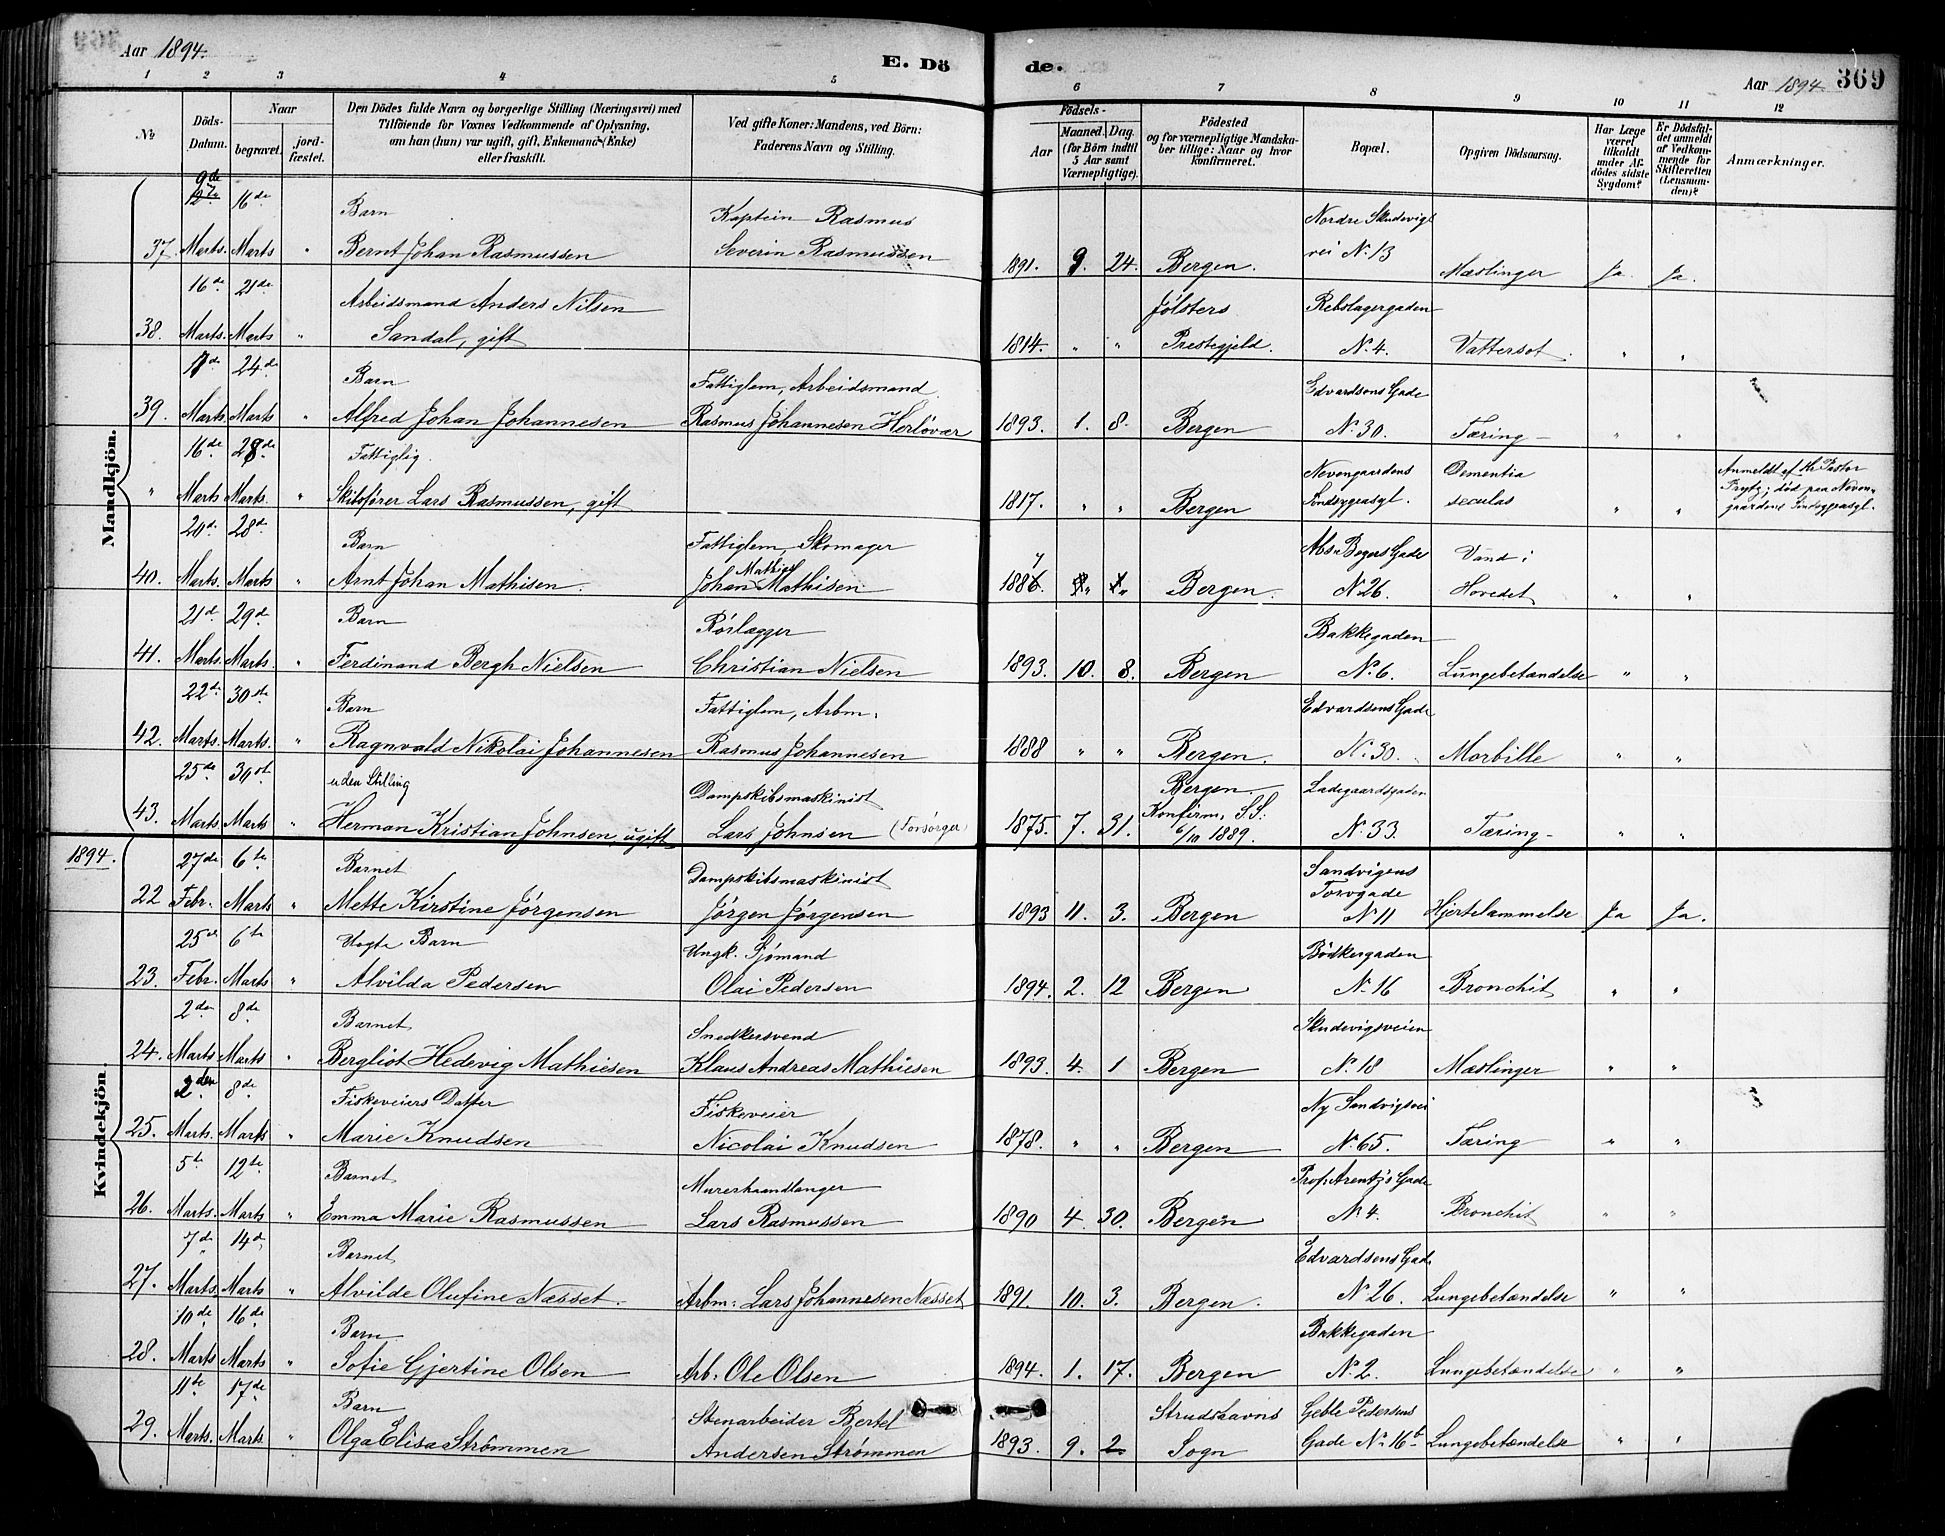 Aar 1894.
E. Dö de.
Aar 1894 369
1 2 3 4 5 6 7 8 9 10 11 12
No.
Döds-Datum.
Naar
begravet.
jordfæstet.
Den Dödes fulde Navn og borgerlige Stilling (Næringsvei) med
Tilföiende for Voxnes Vedkommende af Oplysning,
om han (hun) var ugift, gift, Enkemand (Enke)
eller fraskilt.
Ved gifte Koner: Mandens, ved Börn:
Faderens Navn og Stilling.
Födsels-
Aar
Maaned. Dag.
(for Börn indtil
5 Aar samt
Værnepligtige).
Födested
og for værnepligtige Mandska-
ber tillige: Naar og hvor
konfirmeret.
Bopæl.
Opgiven Dödsaarsag.
Har Læge
været
tilkaldt
under Af-
dödes sidste
Sygdom?
Er Dödsfal-
det anmeldt
af Vedkom-
mende for
Skifteretten
(Lensman-
den)?
Anmærkninger.
Mandkjön.
9de 16de Barn Kaptein Rasmus Nordre Skudevigs
37. Marts. Marts " Bernt Johan Rasmussen Severin Rasmussen 1891. 9. 24. Bergen. vei No 13 Mæslinger Ja. Ja.
16de 21de Arbeidsmand Anders Nilsen Jølsters Rebslagergaden
38. Marts. Marts " Sandal, gift 1814. " " Prestegjeld. No 4. Vattersot. " "
17de 24de Barn Fattiglem, Arbeidsmand Edvardsens Gade
39. Marts Marts " Alfred Johan Johannesen Rasmus Johannesen Herlövær 1893. 1. 8. Bergen No 30. Tæring " "
16de 28de Fattiglig. Nevengaardens Dementia Anmeldt af Hr. Pastor
" Marts Marts. " Skibsfører Lars Rasmussen, gift 1817. " " Bergen Sindsygeasyl. seculas " " Prytz; död paa Neven-
gaardens Sindsygeasyl.
20de 28de Barn Fattiglem, Skomager Abs. Beyers Gade Vand i
40. Marts. Marts " Arnt Johan Mathisen. Johan Mathias Mathisen 1887. " " Bergen. No 26. Hovedet " "
21de 29de Barn Rörlægger Bakkegaden
41. Marts. Marts. " Ferdinand Bergh Nielsen Christian Nielsen 1893. 10. 8. Bergen No 6. Lungebetændelse " "
22de 30te Barn Fattiglem, Arbm. Edvardsens Gade
42. Marts. Marts. " Ragnvald Nikolai Johannesen Rasmus Johannesen 1888 " " Bergen. No 30. Morbille " "
25de 30te uden Stilling Dampskibsmaskinist Bergen. Ladegaardsgaden
43. Marts Marts " Herman Kristian Johnsen, ugift Lars Johnsen (Forsörger) 1875. 7. 31. Konfirm. S.S. 6/10 1889. No 33. Tæring " "
1894.
Kvindekjön
27de 6te Barnet Dampskibsmaskinist Sandvigens Torvgade
22 Febr. Marts " Mette Kirstine Jörgensen Jörgen Jörgensen 1893 11. 3. Bergen No 11 Hjertelammelse Ja Ja.
25de 6te Uægte Barn Ungk. Sjömand Bödkergaden
23. Febr. Marts " Alvilda Pedersen Olai Pedersen 1894. 2. 12 Bergen No 16 Bronchit " "
2den 8de Barnet Snedkersvend Skudevigsveien
24. Marts Marts " Bergliot Hedevig Mathiesen Klaus Andreas Mathiesen 1893. 4. 1 Bergen No 18 Mæslinger " "
2den 8de Fiskeveiers Datter Fiskeveier Ny Sandvigsvei
25. Marts. Marts " Marie Knudsen Nicolai Knudsen 1878. " " Bergen No 65. Tæring " "
5te 12te Barnet Murerhaandlanger Prof. Arentz's Gade
26. Marts. Marts " Emma Marie Rasmussen Lars Rasmussen 1890 4. 30. Bergen No 4. Bronchit " "
7de 14de Barnet Edvardsens Gade
27. Marts. Marts " Alvilde Olufine Næsset. Arbm: Lars Johannesen Næsset 1891. 10. 3. Bergen. No 26. Lungebetændelse " "
10de 16de Barn Bakkegaden
28. Marts Marts " Sofie Gjertine Olsen Arb. Ole Olsen 1894. 1. 17. Bergen No 2. Lungebetændelse " "
11te 17de Barn Stenarbeider Bertel Strudshavns Geble Pedersens
29. Marts. Marts. " Olga Elisa Strømmen Andersen Strømmen 1893. 9. 2 Sogn Gade No 16b Lungebetændelse " "